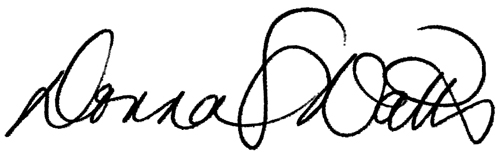 Donna S Watts